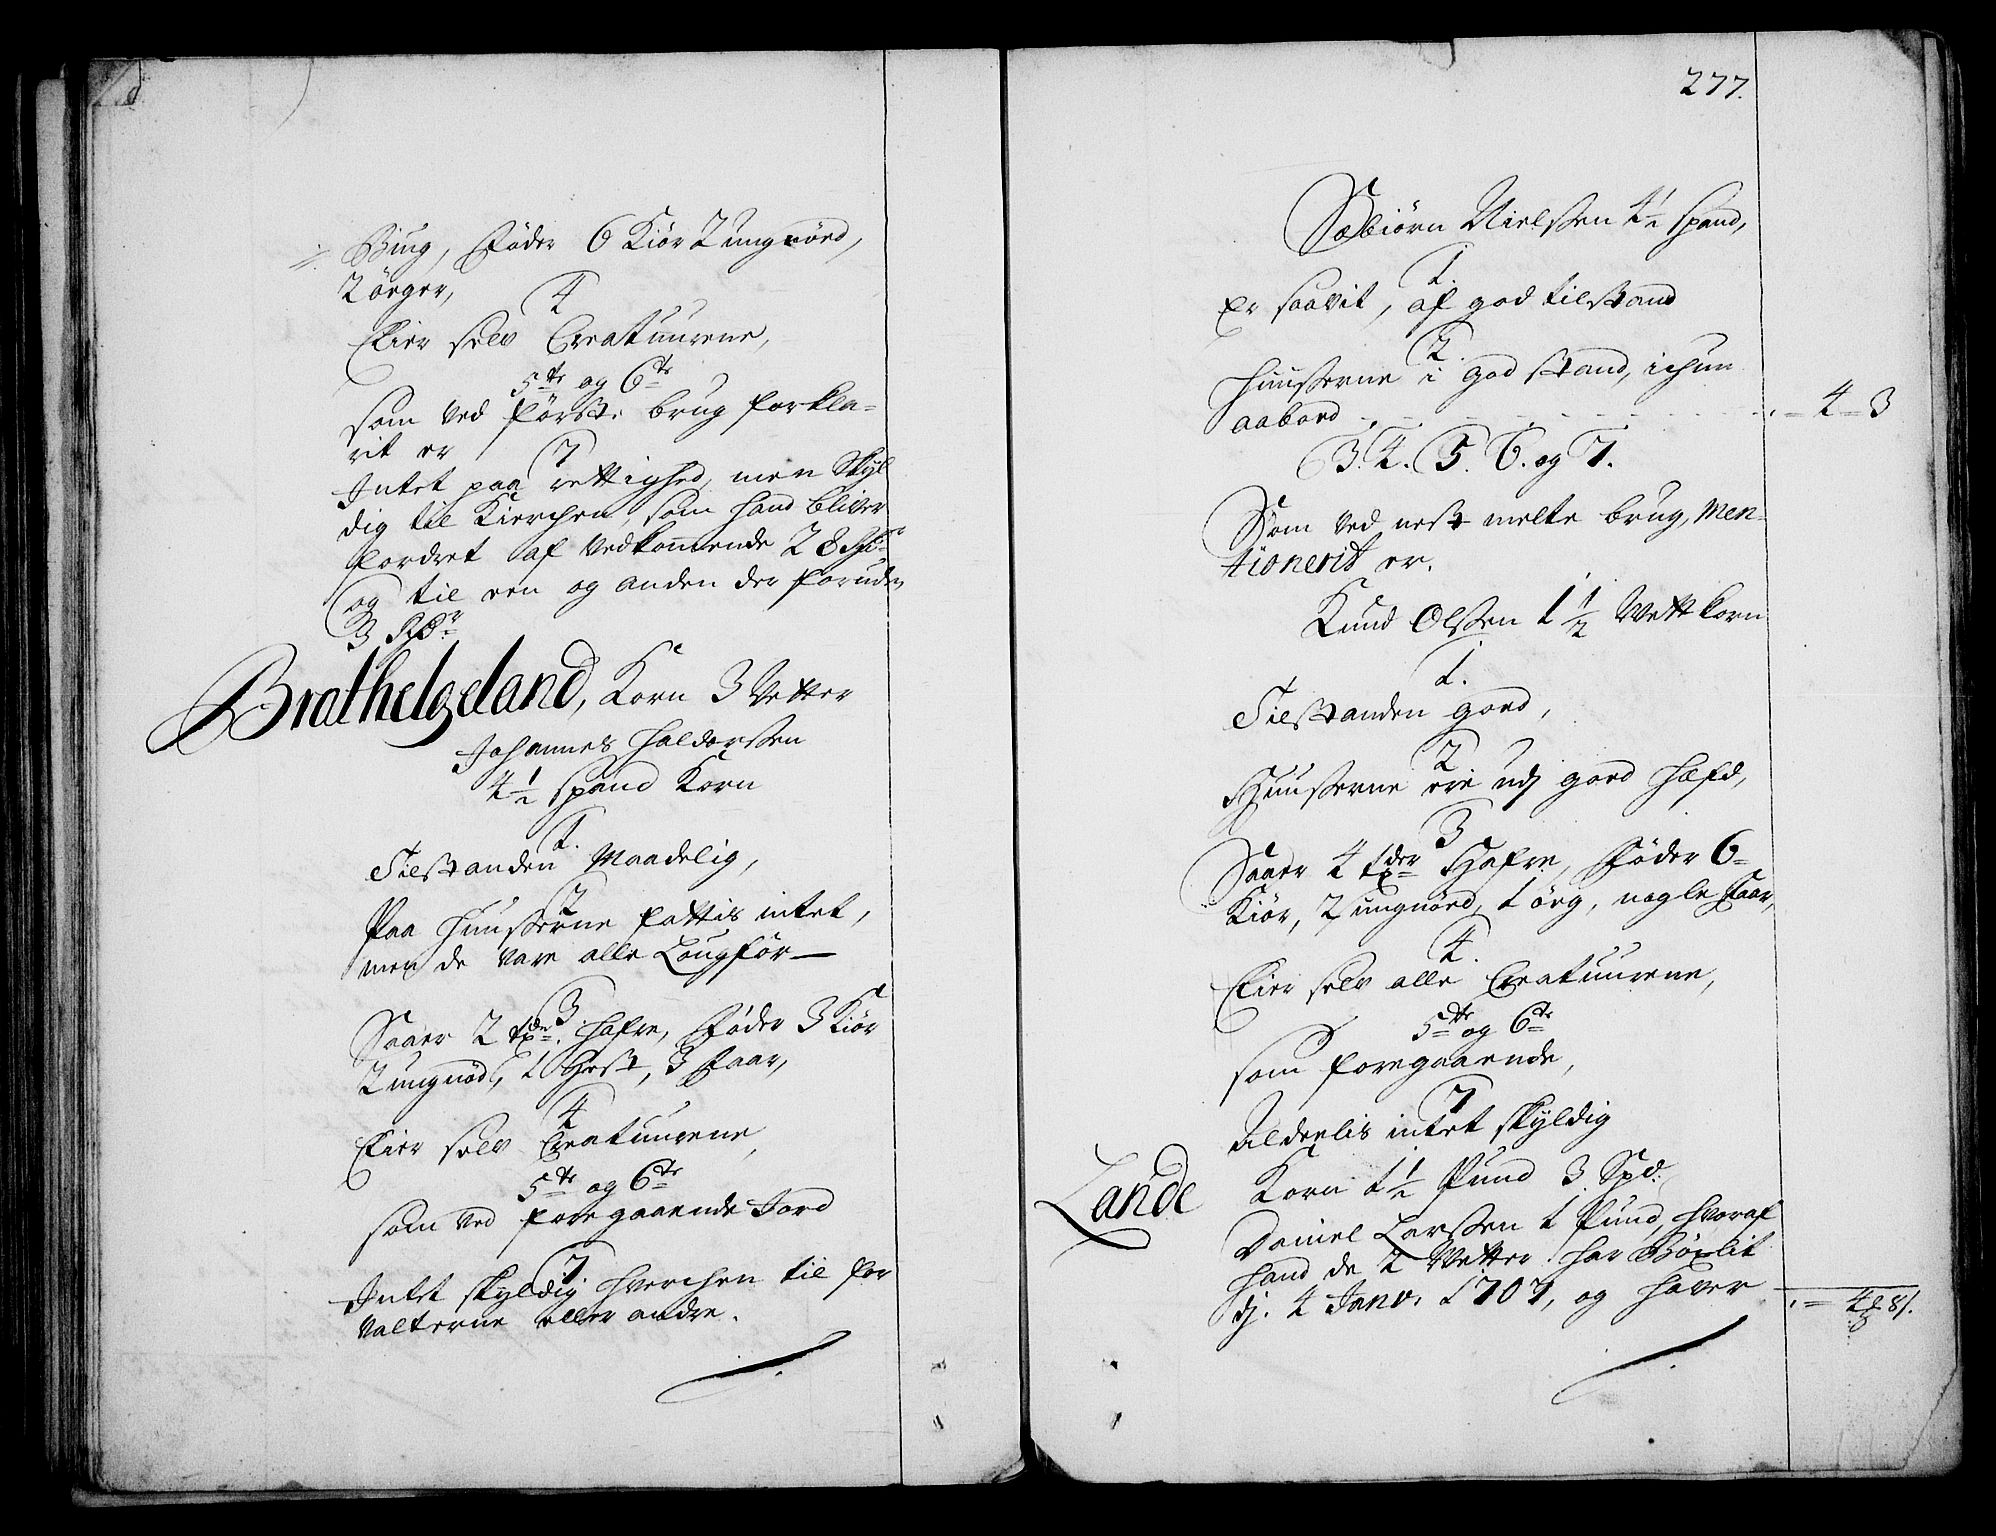 Biug, føder 6 Kiør 2 ungnöed,
2 öeger,
4
Eier selv Creatuurene,
5te og 6te
som ved först: brug forkla-
rit er
7
Intet paa rettighed, men Skyl
dig til Kierchen, som hand bliver
fordret af vedkommende 28
og til een og anden der foruden
3 Rdr
Brathelgeland, Korn 3 Vetter
Johannes Haldorssen
4½ Spand Korn
1.
Tilstanden Maadelig,
2
Paa Huusserne fattis intet,
men de vare alle Laugför
3
Saaer 2 tdr: Hafre, föder 3 Kiör
2 ungnöd, 1 Hest, 3 faar,
4
Eier selv Creatuurene,
5te og 6te
som ved foregaaende Jord
7
Intet skyldig hverchen til for
valterne eller andre.
277.
Sæbiörn Nielssen 4½ Spand,
1.
er saavit, af god tilstand
2.
Huusserne i god stand, ichun
aabod - 4 - 3
3. 4. 5. 6. og 7.
Som ved nest melte brug, Men-
tionerit er.
Knud Olssen 1 1/2 Vett Korn
1.
Tilstanden goed,
2
Huusserne ere udj goed Hæfd,
3
Saaer 4 tdr Hafre, föder 6
Kiör, 2 ungnöed, 1 ög, nogle faar,
4.
Eier selv alle Creatuurene,
5te og 6te
som foregaaende,
7
Aldeelis intet skyldig
Lande Korn 1½ Pund 3 Spd:
Daniel Larssen 1 Pund, hvoraf
hand de 2 Vetter har Böxlit
dj. 4 Janv. 1707, og haver